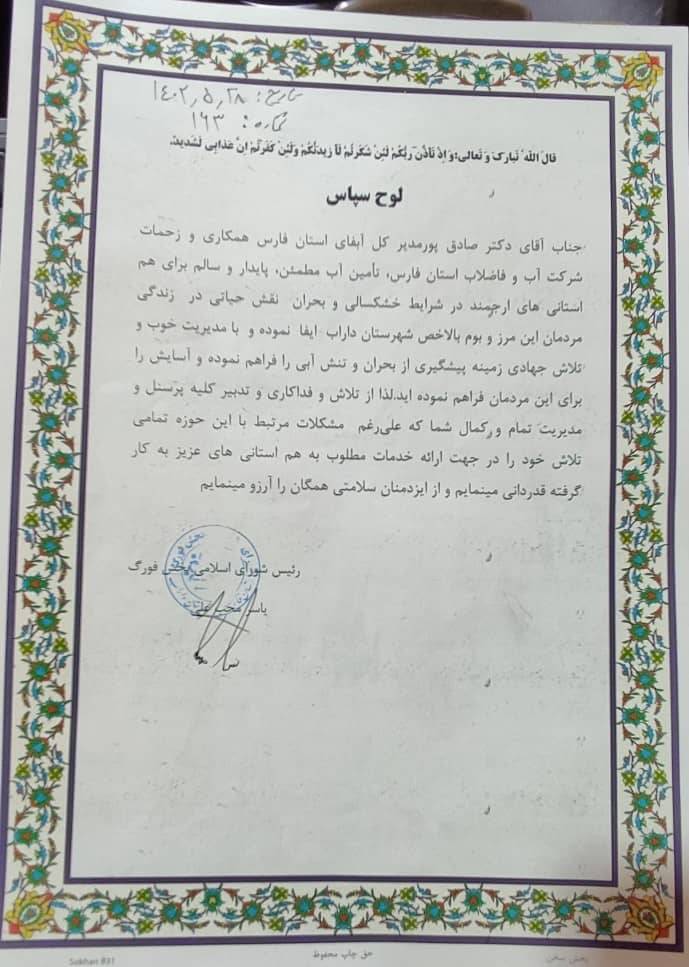 تاریخ: ۱۴۰۲,۵,۲۸
شماره: ۱۶۳
قالَ اللهُ تَبارَکَ وَ تَعالی:وَ اِذْ تَأَذَّنَ رَبُّکُمْ لَئِنْ شَکَرْتُمْ لَأَ زیدَنَّکُمْ وَلَئِنْ کَفَرْتُمْ اِنَّ عَذابی لَشَدیدٌ.
لوح سپاس
جناب آقای دکتر صادق پورمدیر کل آبفای استان فارس همکاری و زحمات
شرکت آب و فاضلاب استان فارس، تأمین آب مطمئن، پایدار و سالم برای هم
استانی های ارجمند در شرایط خشکسالی و بحران نقش حیاتی در زندگی
مردمان این مرز و بوم بالاخص شهرستان داراب ایفا نموده و با مدیریت خوب و
تلاش جهادی زمینه پیشگیری از بحران و تنش آبی را فراهم نموده و آسایش را
برای این مردمان فراهم نموده اید.لذا از تلاش و فداکاری و تدبیر کلیه پرسنل و
مدیریت تمام و کمال شما که علی‌رغم مشکلات مرتبط با این حوزه تمامی
تلاش خود را در جهت ارائه خدمات مطلوب به هم استانی های عزیز به کار
گرفته قدردانی مینمایم و از ایزدمنان سلامتی همگان را آرزو مینمایم
رئیس شورای اسلامی بخش فورگ
یاسر محب علی
Sokhan 831
حق چاپ محفوظ
پخش سخن